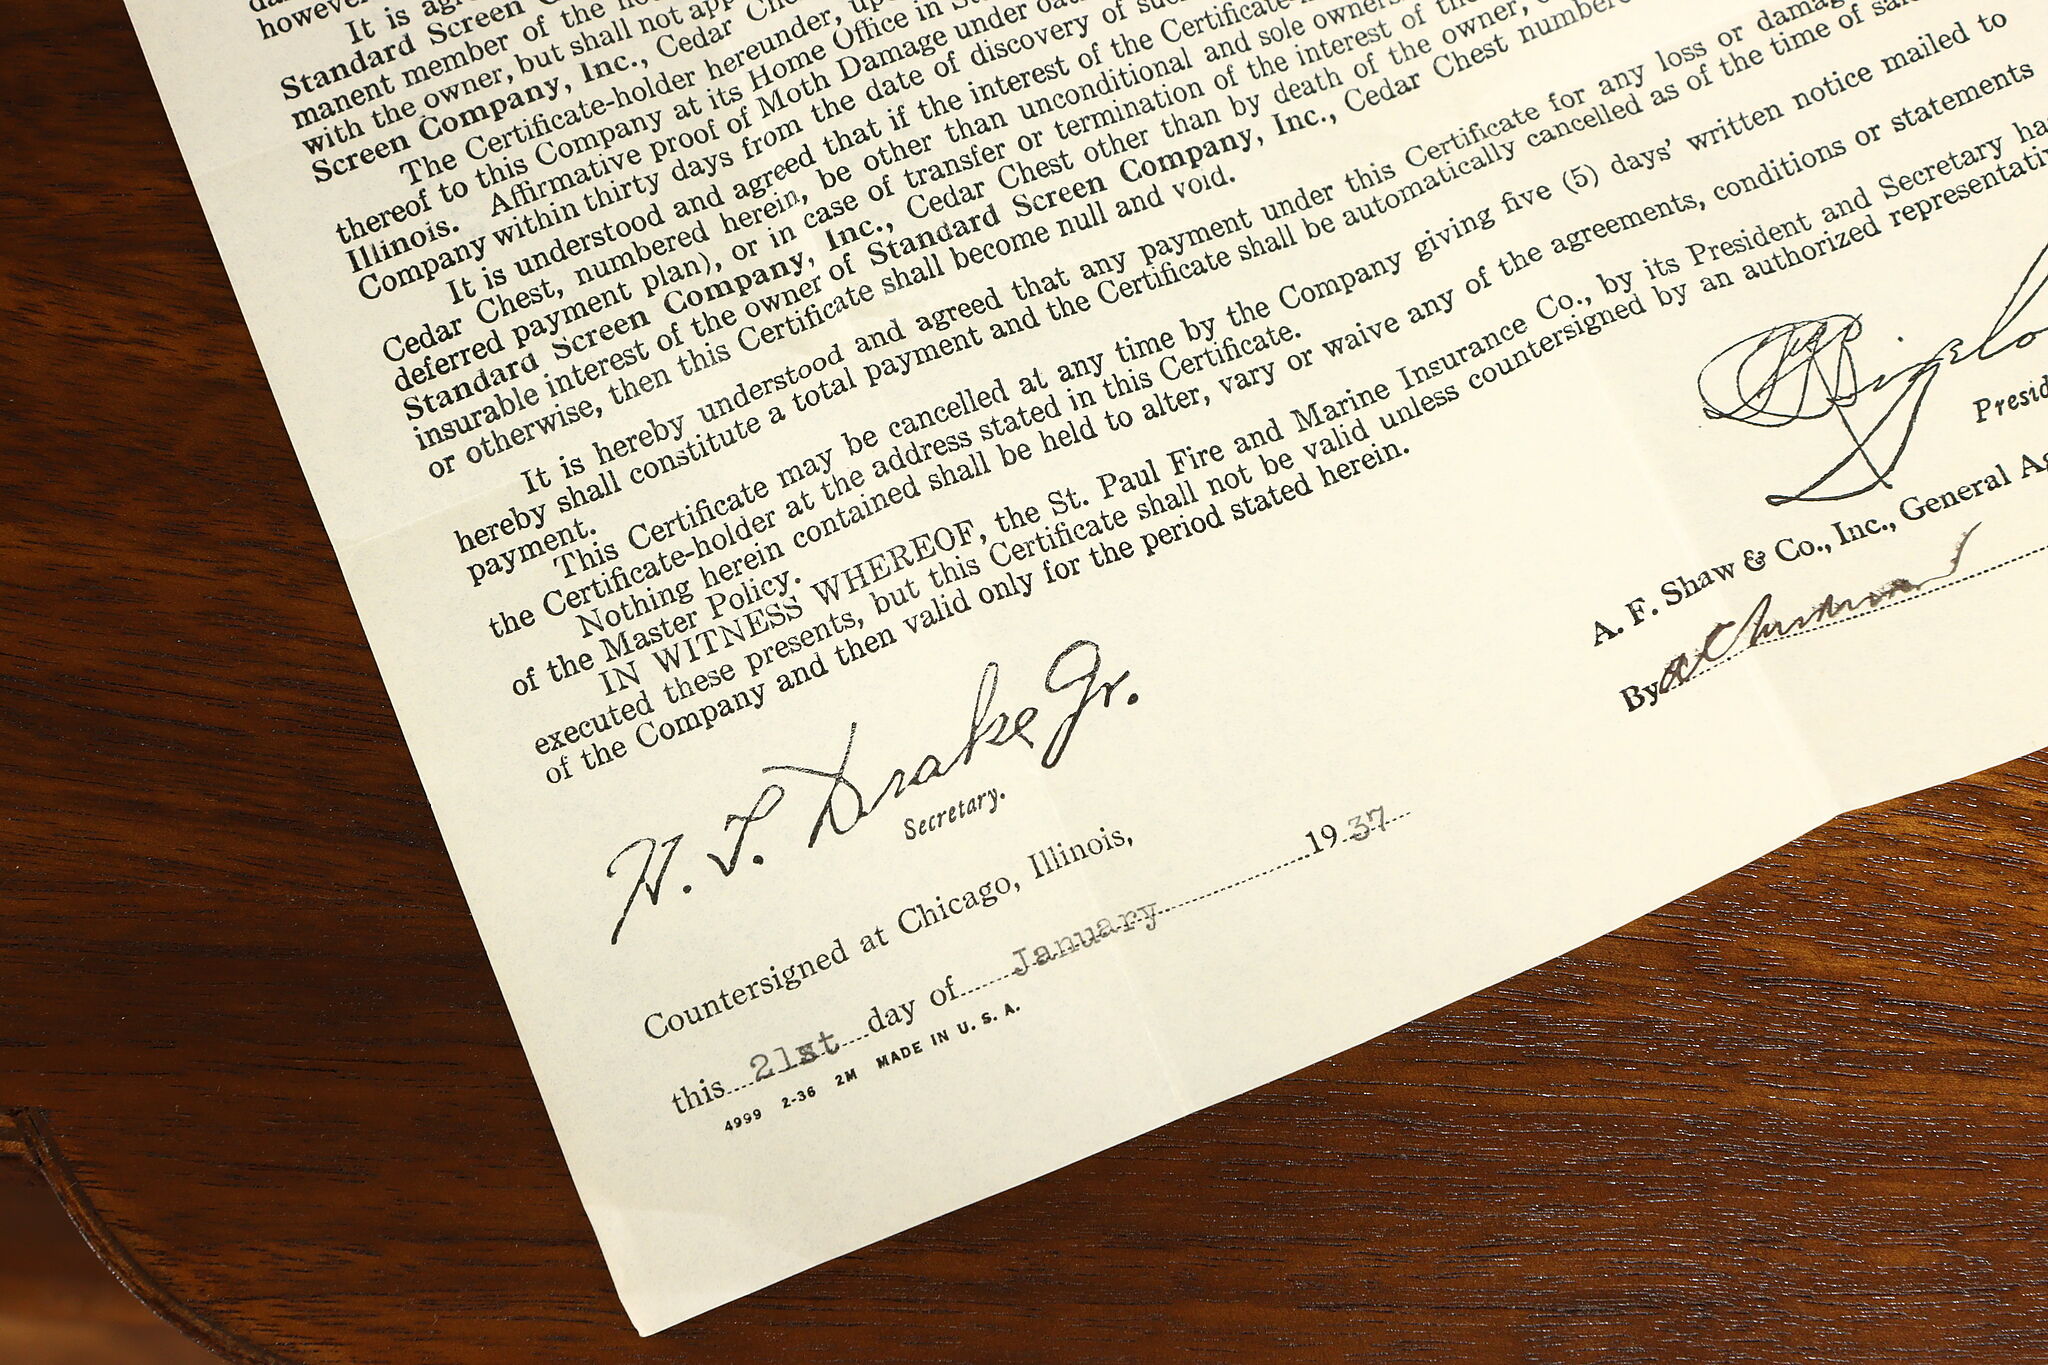 however
It is
Standard Screen
manent member of the
with the owner, but shall not
Screen Company, Inc., Cedar
The Certificate-holder hereunder,
thereof to this Company at its Home Office in
Illinois. Affirmative proof of Moth Damage under
Company within thirty days from the date of discovery of
It is understood and agreed that if the interest of the Certificate-
Cedar Chest, numbered herein, be other than unconditional and sole
deferred payment plan), or in case of transfer or termination of the interest of the
Standard Screen Company, Inc., Cedar Chest other than by death of the owner,
insurable interest of the owner of Standard Screen Company, Inc., Cedar Chest
or otherwise, then this Certificate shall become null and void.
It is hereby understood and agreed that any payment under this Certificate for any loss or
hereby shall constitute a total payment and the Certificate shall be automatically cancelled as of the time of
payment.
This Certificate may be cancelled at any time by the Company giving five (5) days' written notice mailed to
the Certificate-holder at the address stated in this Certificate.
Nothing herein contained shall be held to alter, vary or waive any of the agreements, conditions or statements
of the Master Policy.
IN WITNESS WHEREOF, the St. Paul Fire and Marine Insurance Co., by its President and Secretary
executed these presents, but this Certificate shall not be valid unless countersigned by an authorized
of the Company and then valid only for the period stated herein.
A. F. Shaw & Co., Inc., General
By
H. F. Drake Jr.
Secretary.
Countersigned at Chicago, Illinois,
this 21st day of January 1937
4999 2-36 2M MADE IN U. S. A.